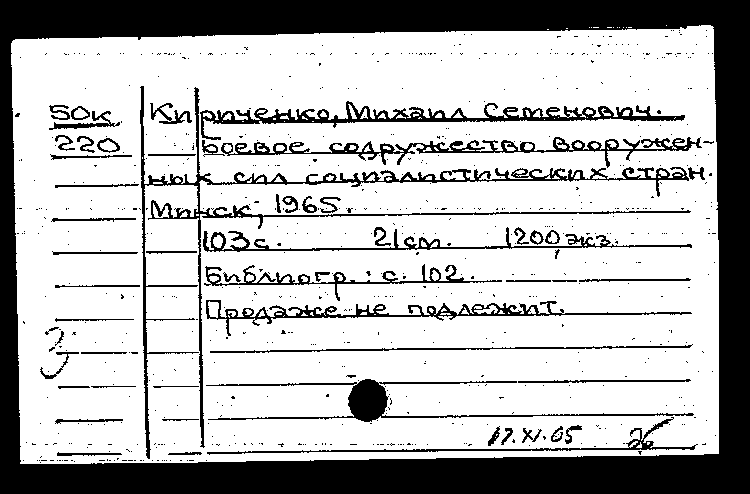 50к Кириченко, Михаил Семенович.
220 Боевое содружество вооружен-
ных сил социалистических стран.
Минск, 1965.
103с. 21см. 1200 экз.
Библиогр.: с. 102.
Продаже не подлежит.
З
17.XI.05